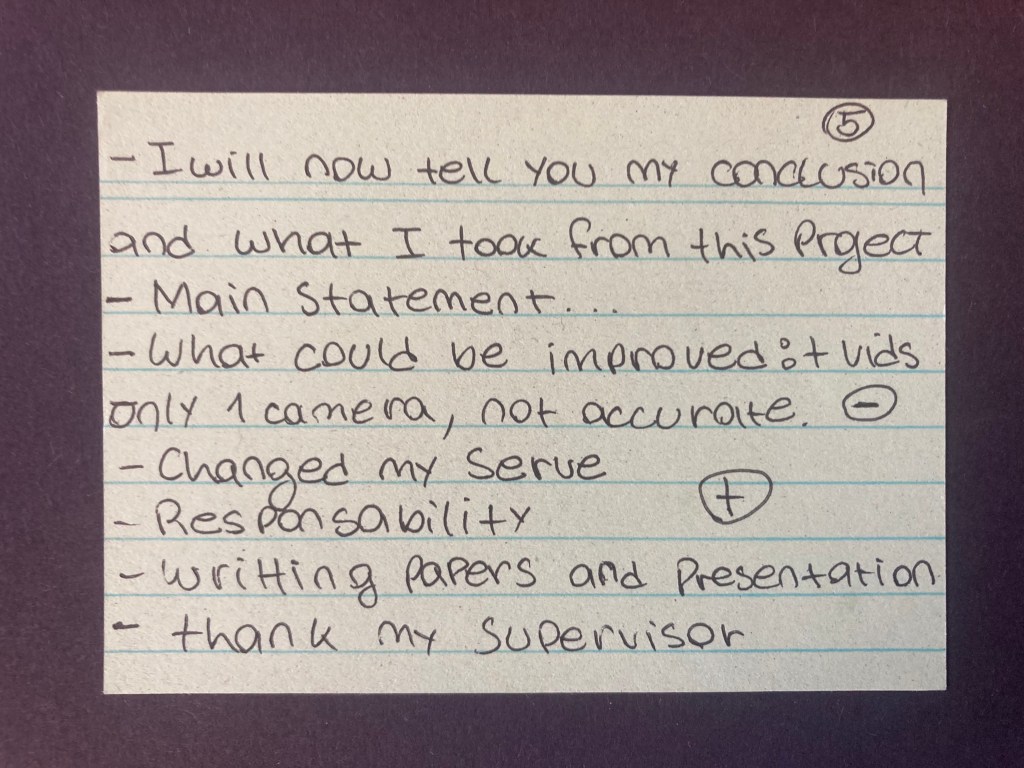 ⑤
- I will now tell you my conclusion
and what I took from this Project
- Main Statement...
- What could be improved: + vids
only 1 camera, not accurate. ⊖
- Changed my serve
⊕
- Responsability
- writting papers and presentation
- thank my supervisor